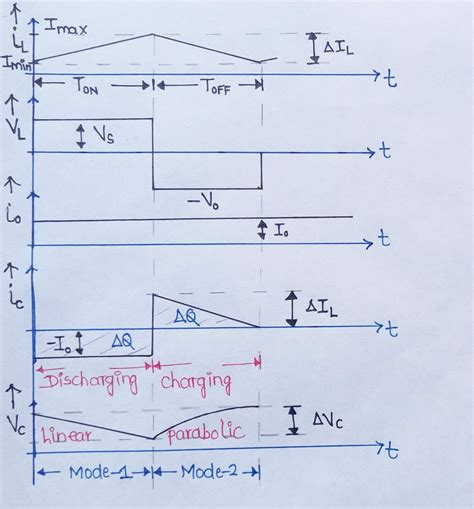 iL
Imax
Imin
ΔIL
t
TON
TOFF
VL
Vs
t
-Vo
io
Io
t
ic
ΔIL
ΔQ
-Io
ΔQ
t
Discharging
Charging
Vc
Linear
parabolic
ΔVc
t
Mode-1
Mode-2